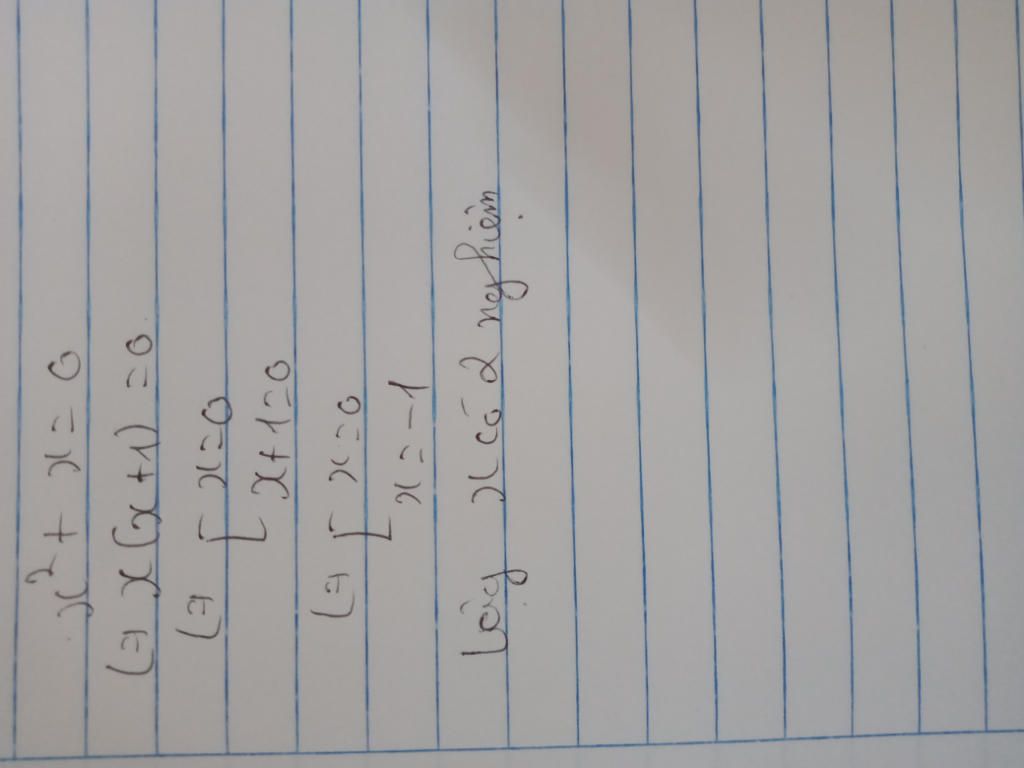 x² + x = 0
(=) x(x+1) = 0.
(=) [ x=0
[ x+1=0
(=) [ x=0
[ x=-1
Vậy x có 2 nghiệm